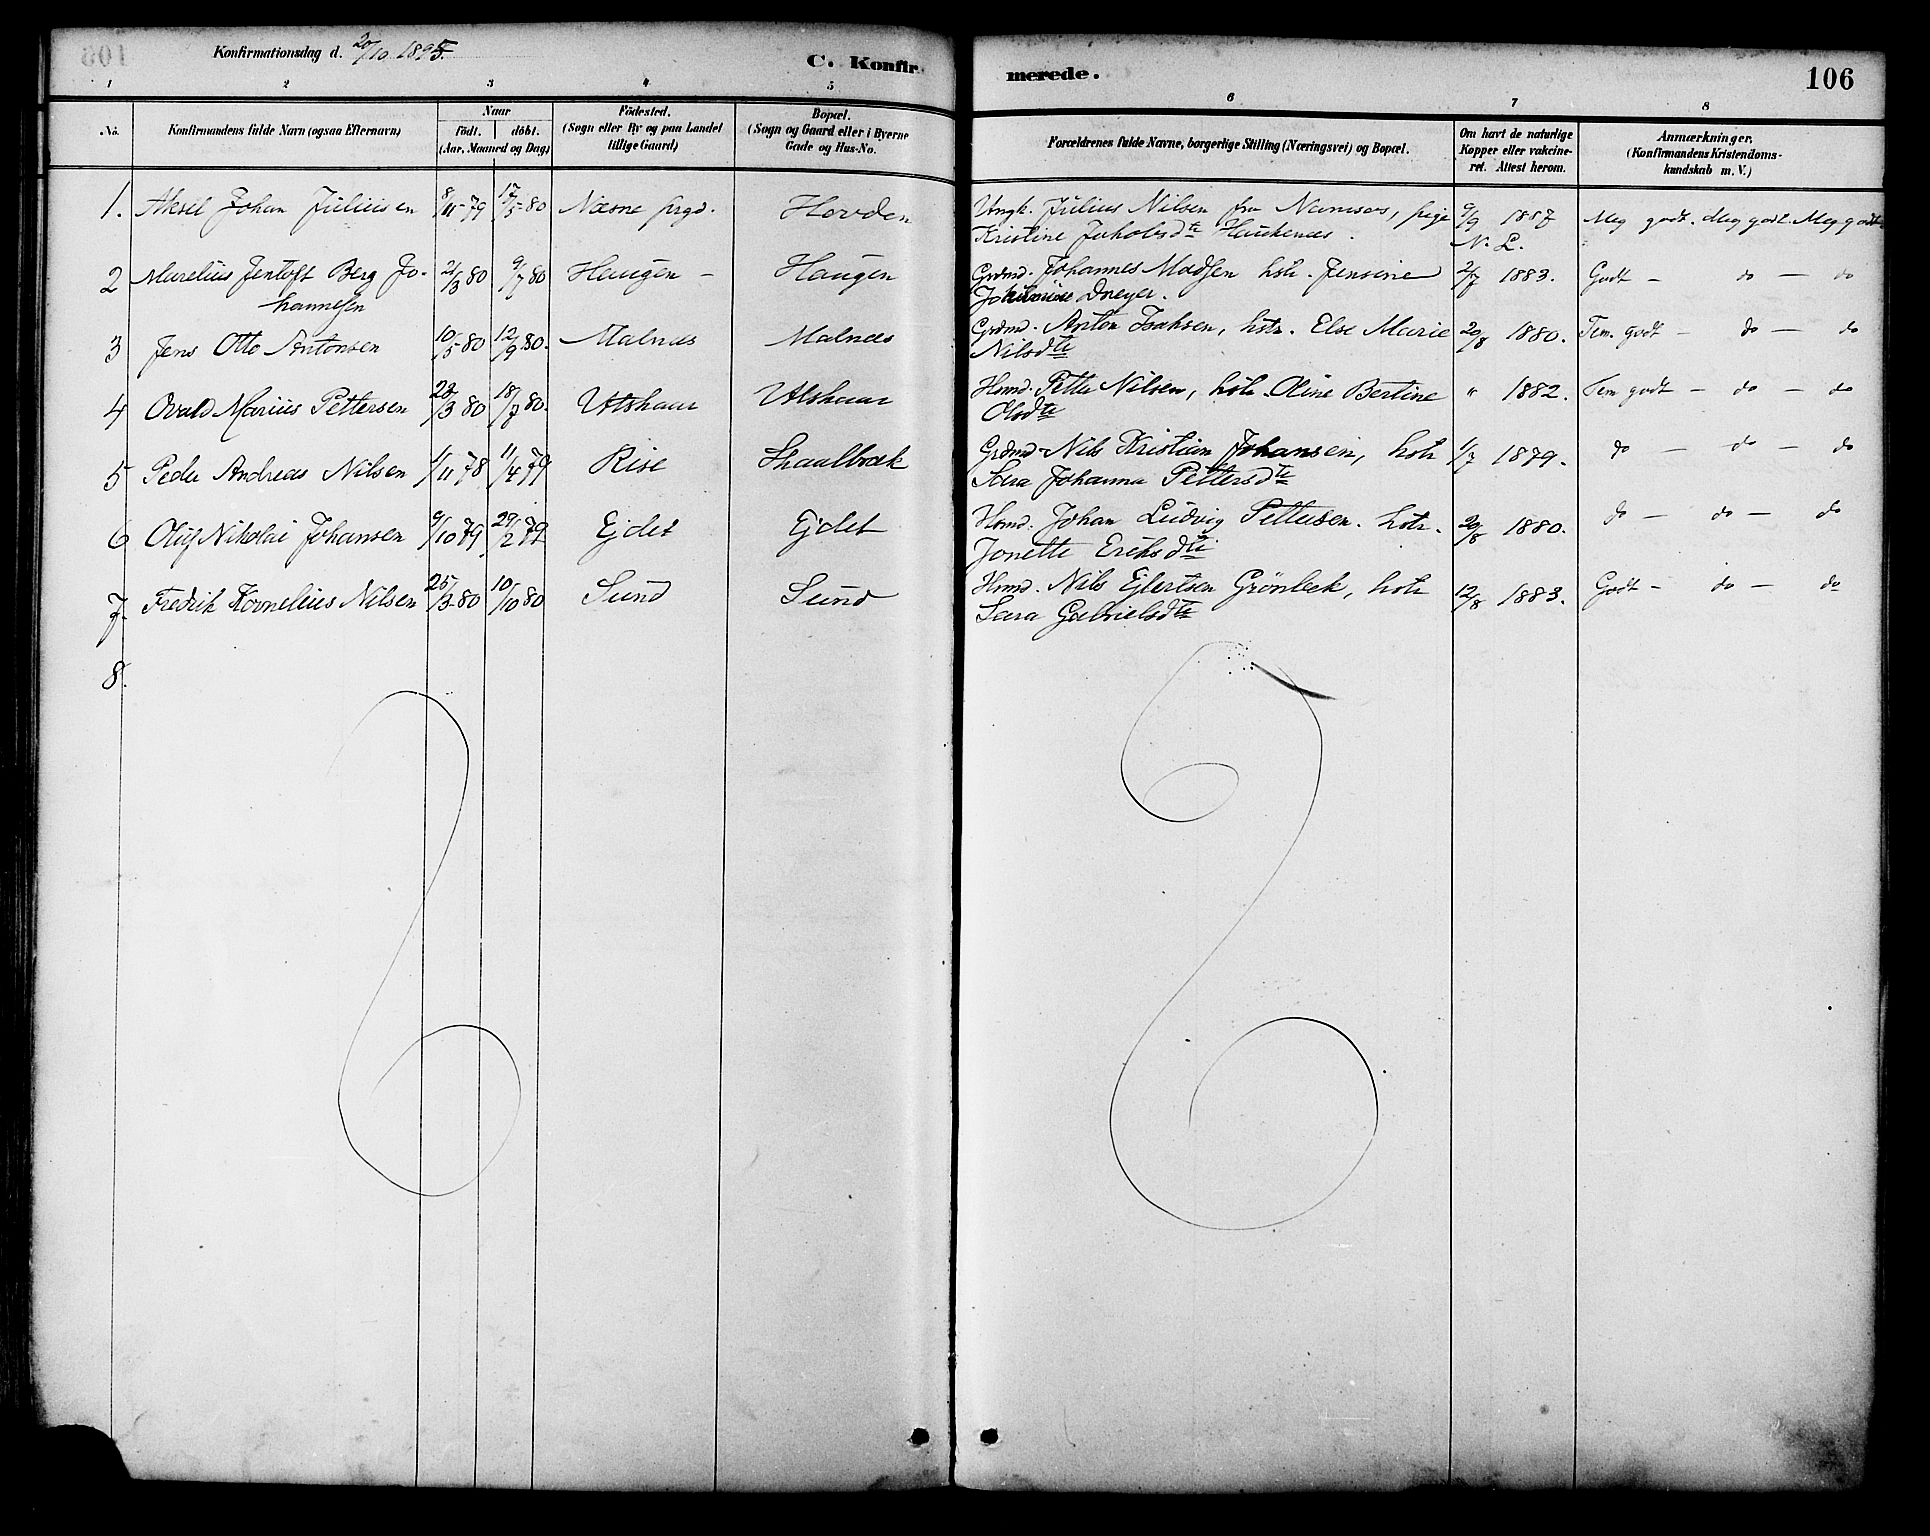 Konfirmationsdag d. 20/10 1895.
C. Konfirmerede.
106
1 2 3 4 5 6 7 8
No.
Konfirmandens fulde Navn (ogsaa Efternavn)
Naar
födt. döbt.
(Aar, Maaned og Dag)
Födested.
(Sogn eller By og paa Landet
tillige Gaard)
Bopæl.
(Sogn og Gaard eller i Byerne
Gade og Hus-No.
Forældrenes fulde Navne, borgerlige Stilling (Næringsvei) og Bopæl.
Om havt de naturlige
Kopper eller vakcine-
ret. Attest herom.
Anmærkninger.
(Konfirmandens Kristendoms-
kundskab m. V.)
1. Aksel Johan Juliusen 8/11 79 17/5 80 Næsne prgd. Hovden Ungk. Julius Nilsen fra Namsos, pige 9/9 1887 Meg godt. Meg godt. Meg godt
Kristine Jakobsdtr Haukenæs. N. L.
2 Marelius Jentoft Berg Jo- 21/3 80 9/7 80 Haugen – Haugen Grdmd. Johannes Madsen hstr. Jensine 2/7 1883. Godt – do – do
hannesen Dreyer.
3 Jens Otto Antonsen 10/5 80 12/9 80. Malnes Malnes Grdmd. Anton Isaksen, hstr. Else Marie 20/8 1880. Tem. godt – do – do
Nilsdtr
4 Ovald Marius Pettersen 23/3 80 18/7 80. Utskaar Utskaar Hmd. Petter Nilsen, hstr. Oline Bertine " 1882. Tem godt – do – do
Olsdtr
5 Peder Andreas Nilsen 1/11 78 11/4 79 Rise Skaalbræk Grdmd Nils Kristian Johansen, hstr 1/7 1879. do – do – do
Sara Johanna Pettersdtr
6 Oluf Nikolai Johansen 9/10 79 29/2 79 Ejdet Ejdet Hmd. Johan Ludvig Pettersen. hstr. 20/8 1880. do – do – do
Jonette Eriksdtr
7. Fredrik Kornelius Nilsen 25/3 80 10/10 80 Sund Sund Hmd. Nils Ejlertsen Grönbek, hstr 12/8 1883. Godt – do – do
Sara Gabrielsdtr
8.